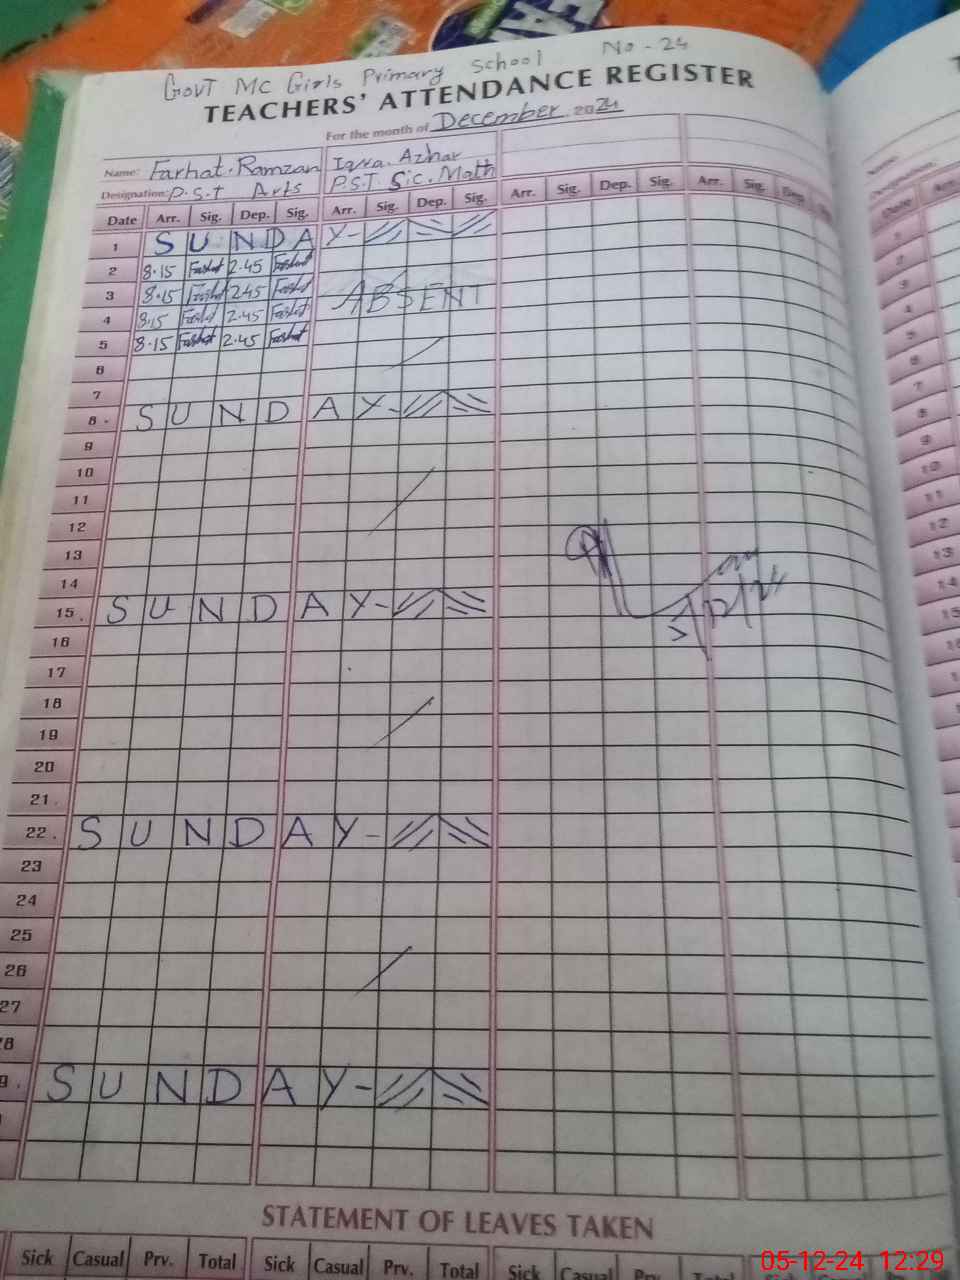 GovT MC Girls Primary School No - 24
TEACHERS' ATTENDANCE REGISTER
For the month of December 2024
Name: Farhat Ramzan Iqra Azhar
Designation: P.S.T Arts P.S.T. Sic. Math
Date Arr. Sig. Dep. Sig. Arr. Sig. Dep. Sig. Arr. Sig. Dep. Sig. Arr. Sig. Dep.
1 SUNDAY-
2 8.15 Farhat 2.45 Farhat
3 8.15 Farhat 2.45 Farhat ABSENT
4 8.15 Farhat 2.45 Farhat
5 8.15 Farhat 2.45 Farhat
6
7
8 SUNDAY-
9
10
11
12
13
14
15 SUNDAY-
16
17
18
19
20
21
22 SUNDAY-
23
24
25
26
27
28
9 SUNDAY-
5/12/24
STATEMENT OF LEAVES TAKEN
Sick Casual Prv. Total Sick Casual Prv. Total Sick Casual Prv. Total Sick
05-12-24 12:29